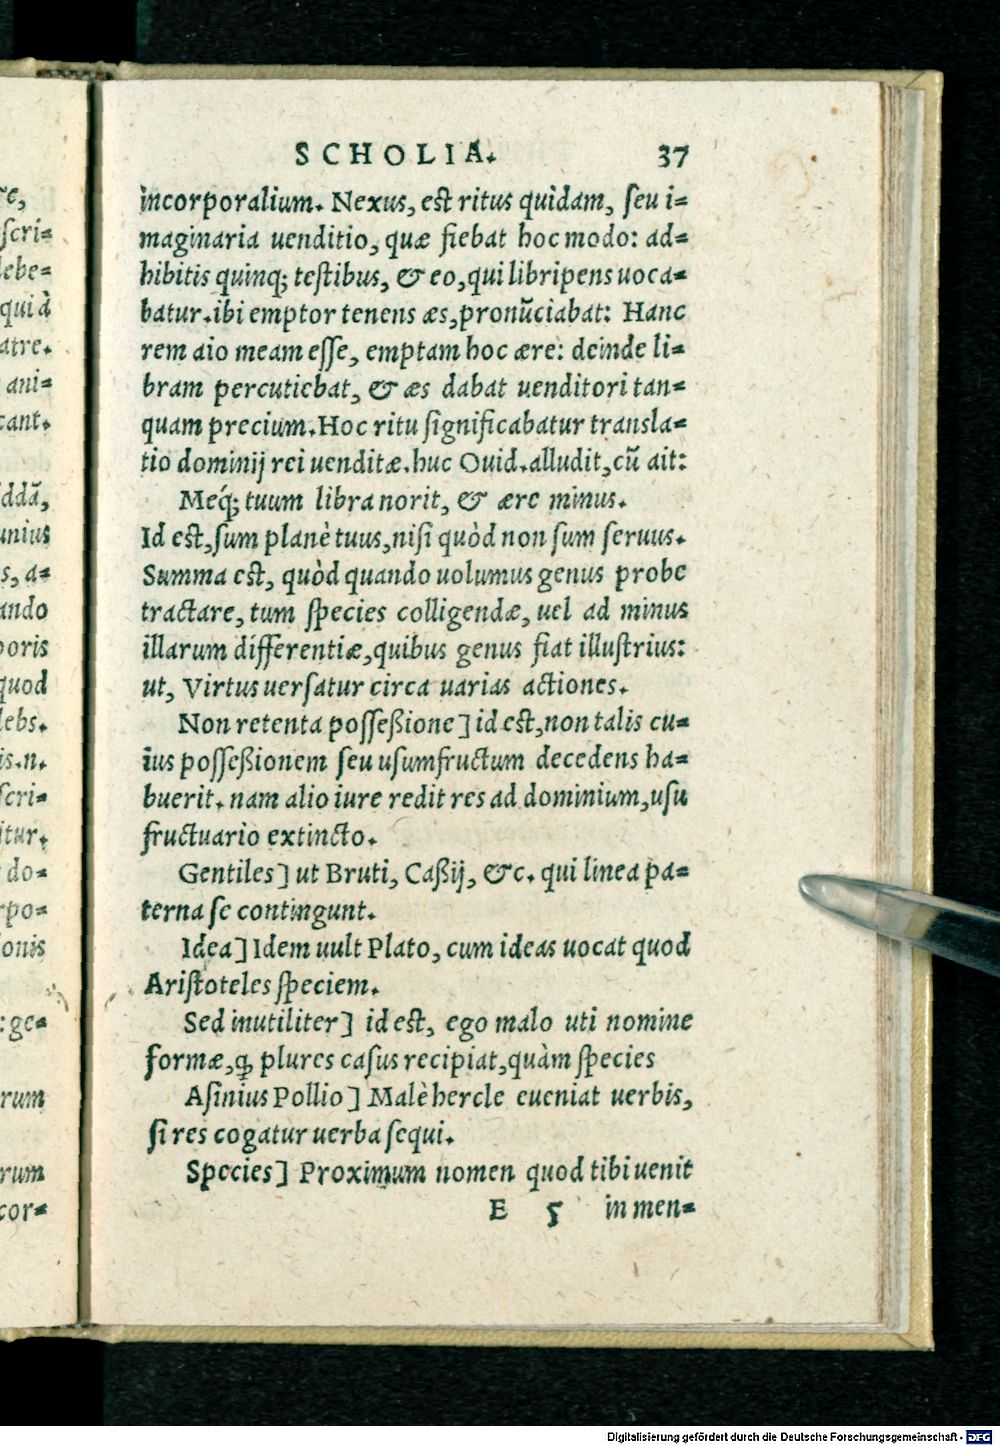 SCHOLIA. 37
incorporalium. Nexus, est ritus quidam, seu i=
maginaria uenditio, quæ fiebat hoc modo: ad=
hibitis quinq; testibus, & eo, qui libripens uoca=
batur. ibi emptor tenens æs, pronũciabat: Hanc
rem aio meam esse, emptam hoc ære: deinde li=
bram percutiebat, & æs dabat uenditori tan=
quam precium. Hoc ritu significabatur transla=
tio dominij rei uenditæ. huc Ouid. alludit, cũ ait:
Meq́; tuum libra norit, & ære minus.
Id est, sum planè tuus, nisi quòd non sum seruus.
Summa est, quòd quando uolumus genus probe
tractare, tum species colligendæ, uel ad minus
illarum differentiæ, quibus genus fiat illustrius:
ut, Virtus uersatur circa uarias actiones.
Non retenta posseßione] id est, non talis cu=
ius posseßionem seu usumfructum decedens ha=
buerit. nam alio iure redit res ad dominium, usu
fructuario extincto.
Gentiles] ut Bruti, Caßij, &c. qui linea pa=
terna se contingunt.
Idea] Idem uult Plato, cum ideas uocat quod
Aristoteles speciem.
Sed inutiliter] id est, ego malo uti nomine
formæ, q̧ plures casus recipiat, quàm species
Asinius Pollio] Malè hercle eueniat uerbis,
si res cogatur uerba sequi.
Species] Proximum nomen quod tibi uenit
E 5 in men=
re,
scri=
debe=
qui à
atre.
ani=
cant.
ddã,
unius
s, a=
ando
poris
quod
lebs.
is. n.
scri=
itur.
do=
rpo=
onis
: ge=
rum
rum
cor=
Digitalisierung gefördert durch die Deutsche Forschungsgemeinschaft - DFG